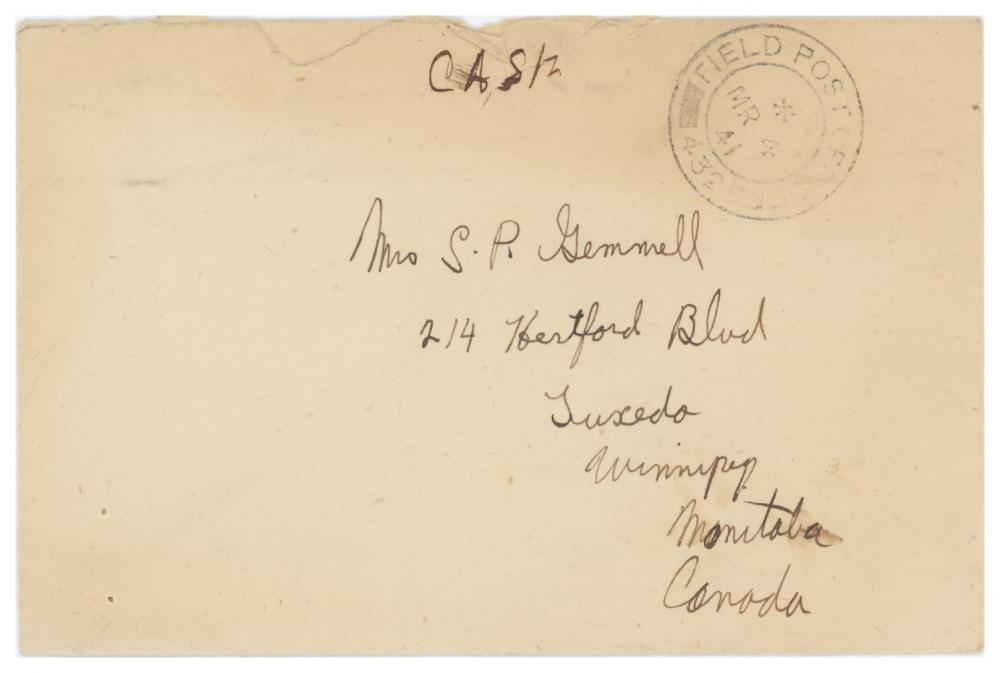 FIELD POST OF
432
*
MR 4
41
Mrs S. P. Gemmell
214 Hertford Blvd
Tuxedo
Winnipeg
Manitoba
Canada